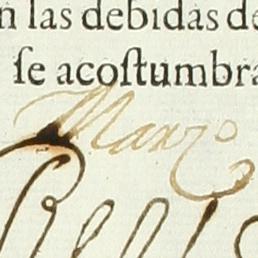 n las debidas de
ſe acoſtumbra
Manzo